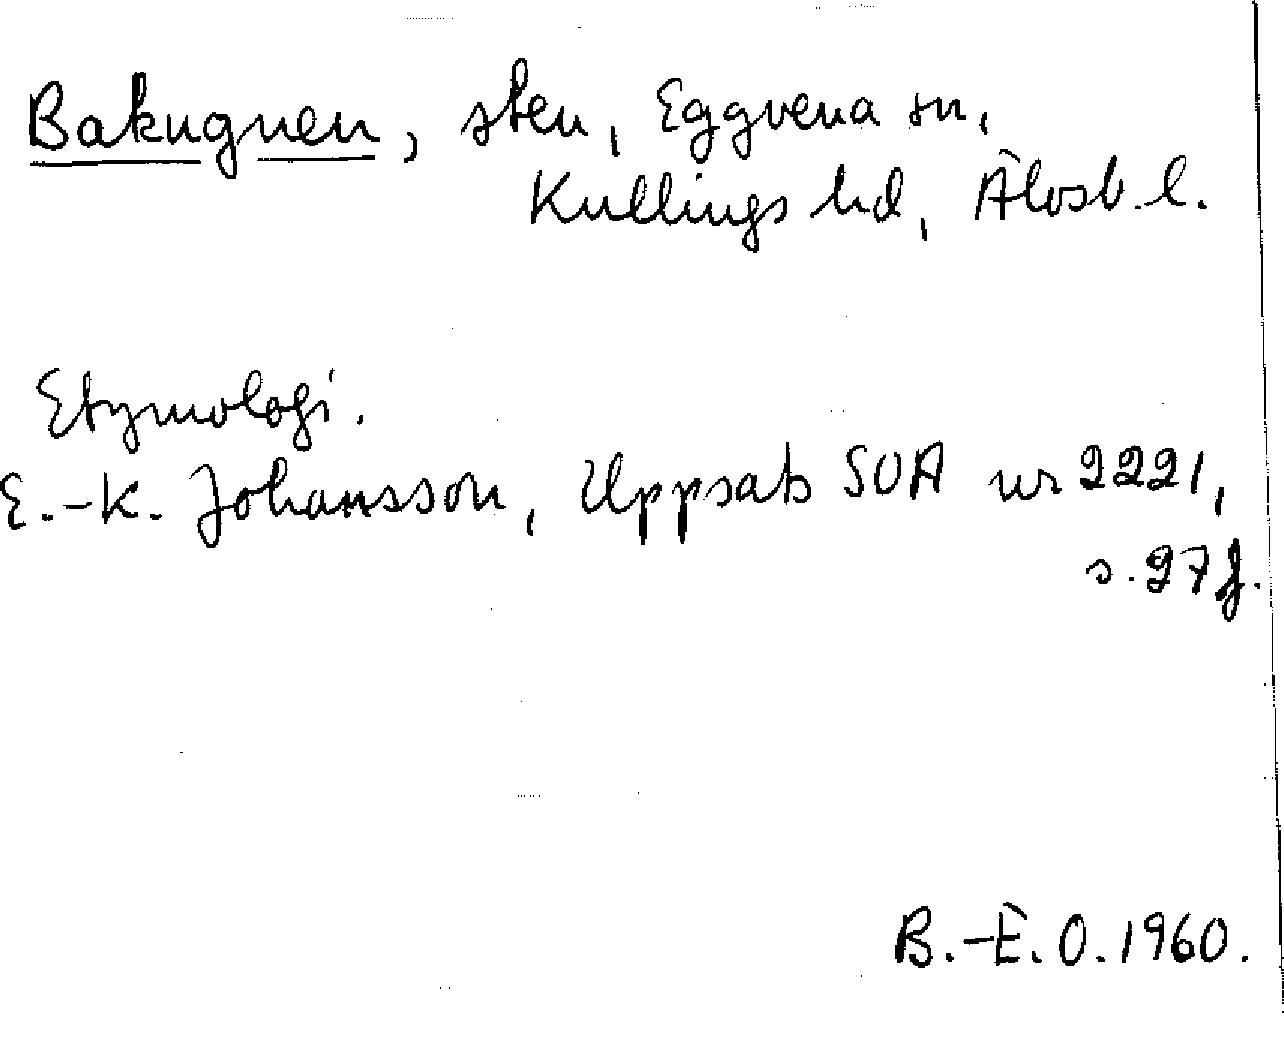 Bakugnen, sten, Eggvena sn,
Kullings hd, Älvsb. l.
Etymologi.
E.-K. Johansson, Uppsats SOA nr 2221,
s. 27 f.
B.-E. O. 1960.